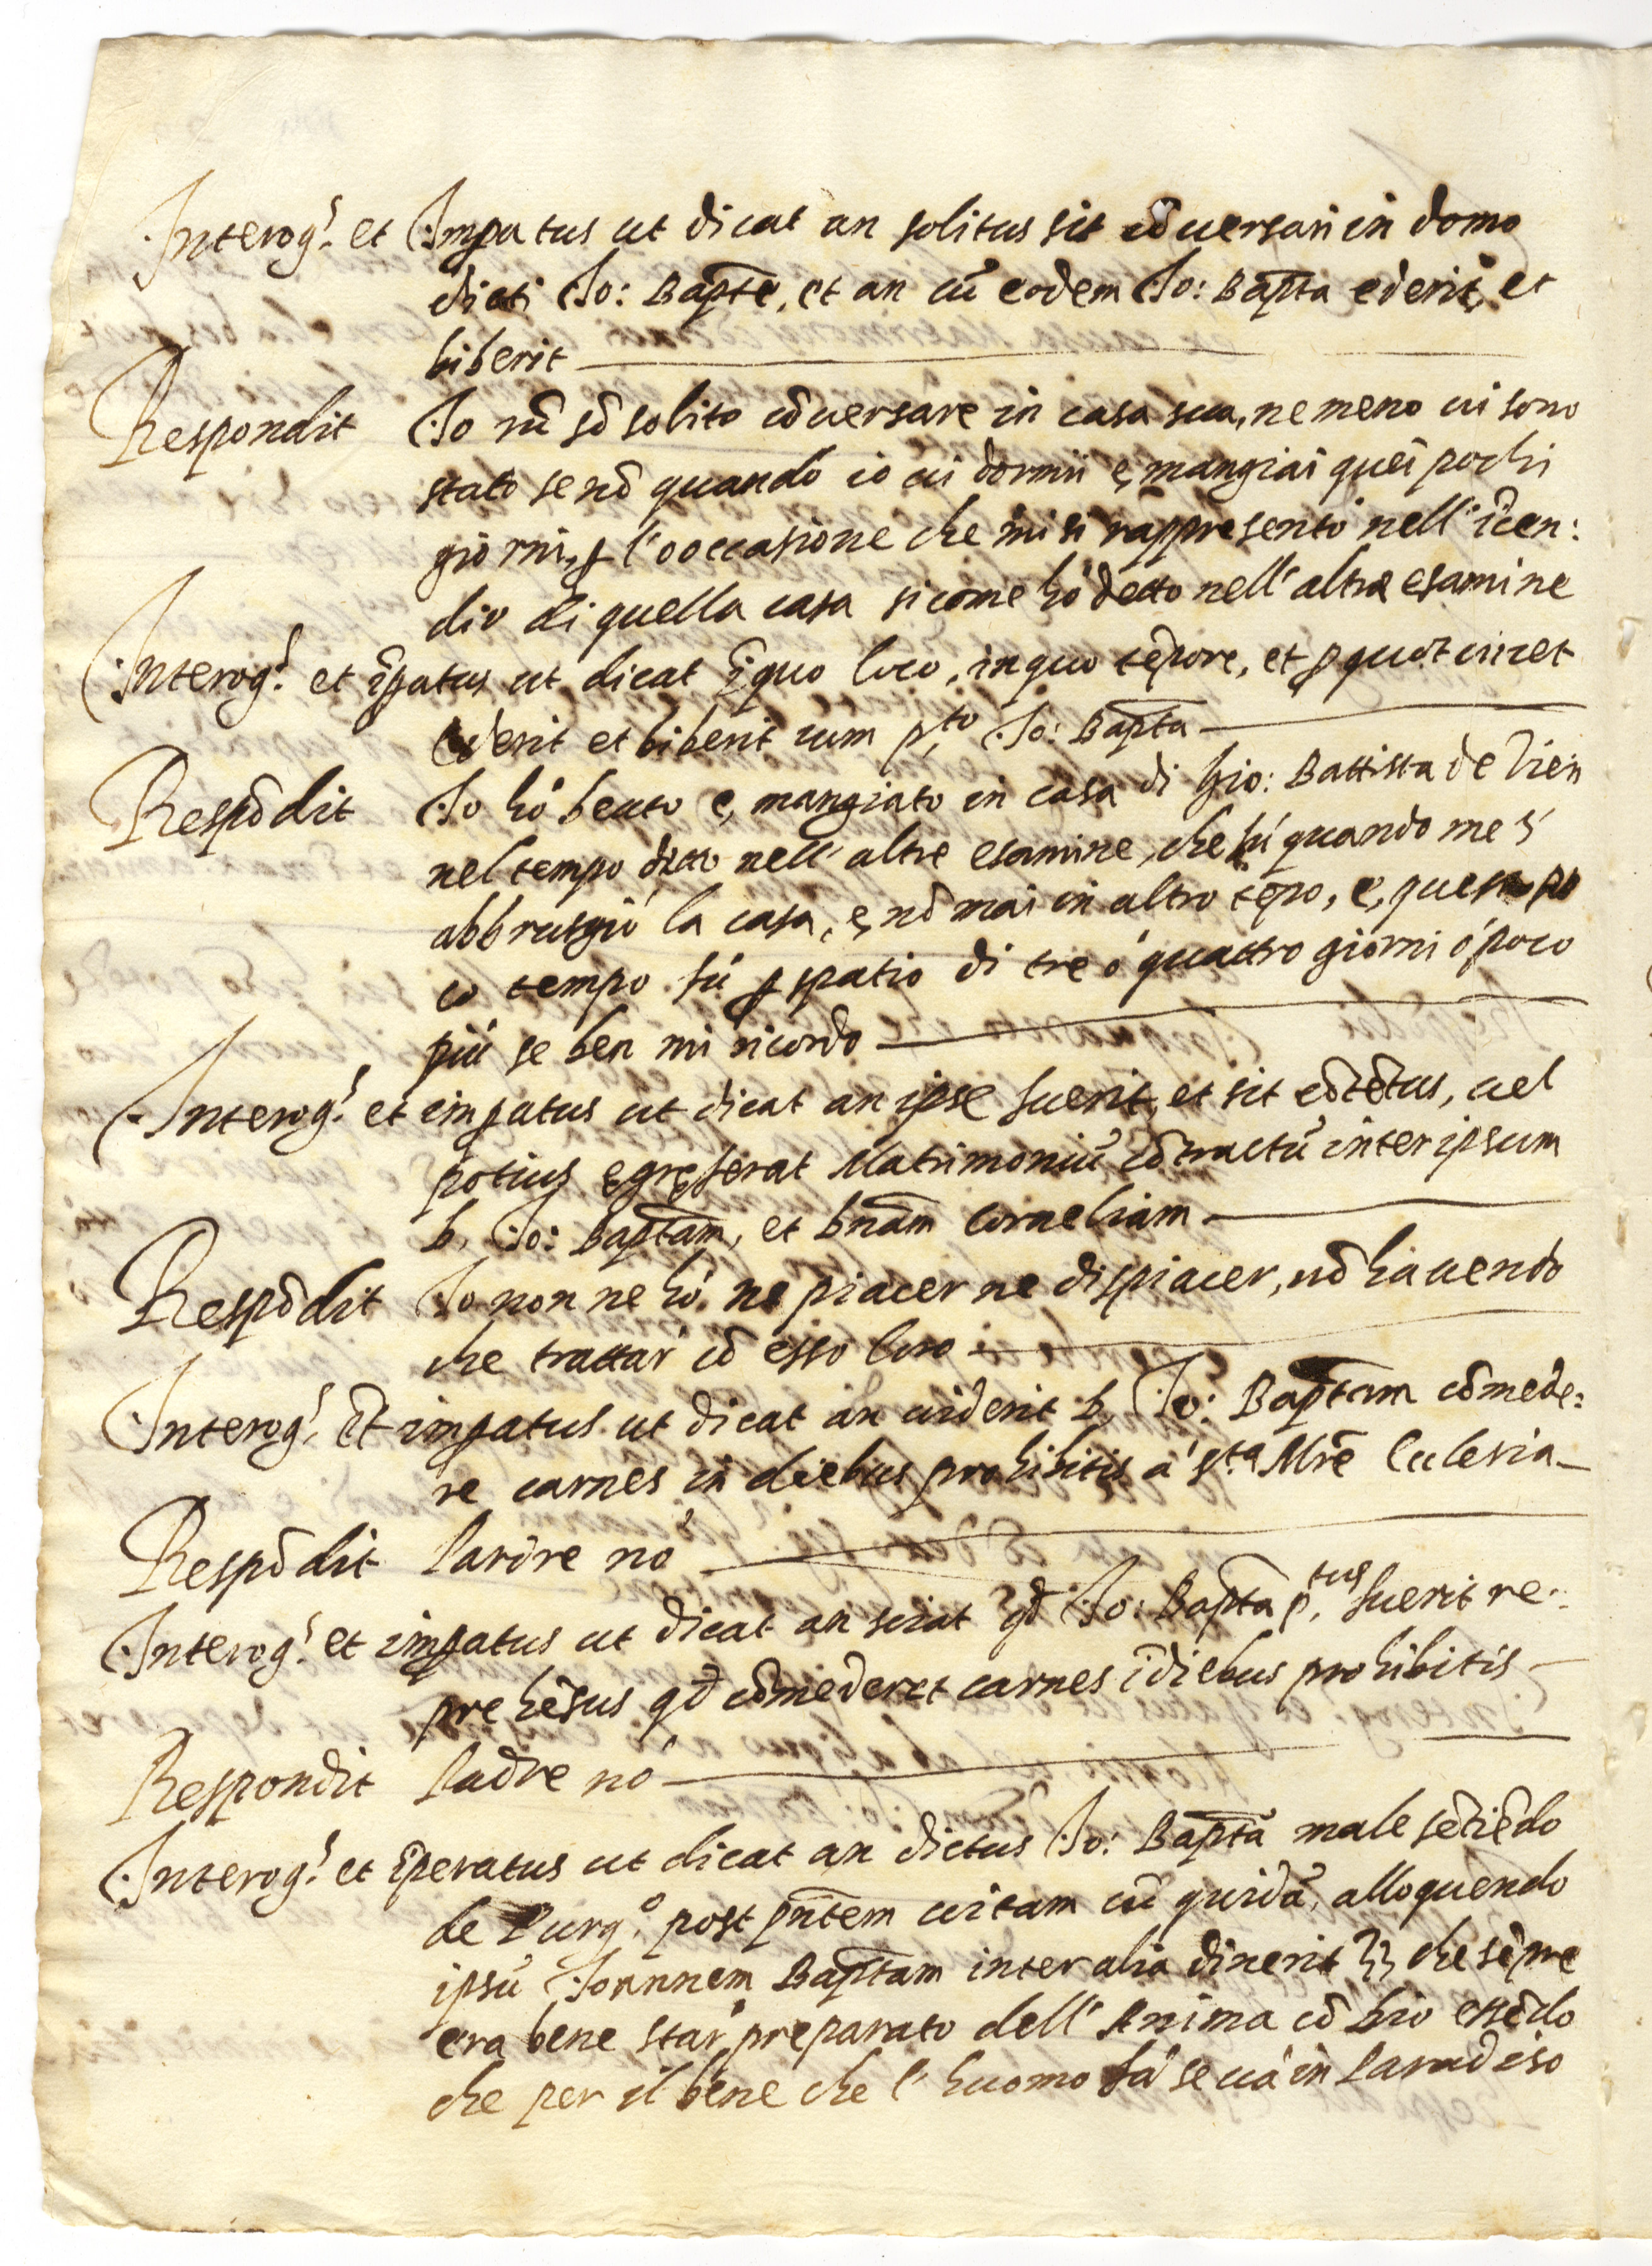 Interog.s et Impatus ut dicat an solitus sit cõuersari in domo
dicti Io: Bapte, et an cũ eodem Io: Bapta ederit, et
biberit
Respondit Io nõ sõ solito cõuersare in casa sua, ne meno ui sono
stato se nõ quando io ui dormii e, mangiai quei pochi
giorni, p l'ooccasione che mi si rappresentò nell'icen:
dio di quella casa sicome hò detto nell'altra esamine
Interog.s et ĩpatus ut dicat ĩ quo loco, in quo tẽpore, et p quot uicet
ederit et biberit cum p.to Io: Bapta
Respõdit Io hò beuto e, mangiato in casa di Gio: Battista de
nel tempo detto nell'altre esamine, che fù quando me s'
abbrusgiò la casa, e, nõ mai in altro tẽpo, e, questo po
co tempo fù p spatio di tre ò quattro giorni ò poco
più se ben mi ricordo
Interog.s et impatus ut dicat an ipse fuerit, et sit cõtẽtus, uel
potius egre ferat Matrimoniũ cõtractũ inter ipsum
b. Io: Baptam, et bnam Corneliam
Respõdit Io non ne hò ne piacer ne dispiacer, nõ hauendo
che trattar cõ esso loro
Interog.s Et impatus ut dicat an uiderit b, Io: Baptam cõmede:
re carnes in diebus prohibitis à s.ta Mre Ecclesia
Respõdit Padre nò
Interog.s et impatus ut dicat an sciat qd Io: Bapta p.tus fuerit re:
prehẽsus qd cõmederet carnes ĩ diebus prohibitis
Respondit Padre nò
Interog.s et ĩperatus ut dicat an dictus Io: Bapta male sẽtiẽdo
de Purg.o post pntem uitam cũ quidã, alloquendo
ipsũ Ioannem Baptam inter alia dixerit che sẽpre
era bene star preparato dell'Anima cõ Dio essẽdo
che per il bene che l'huomo fà se uà in Paradiso